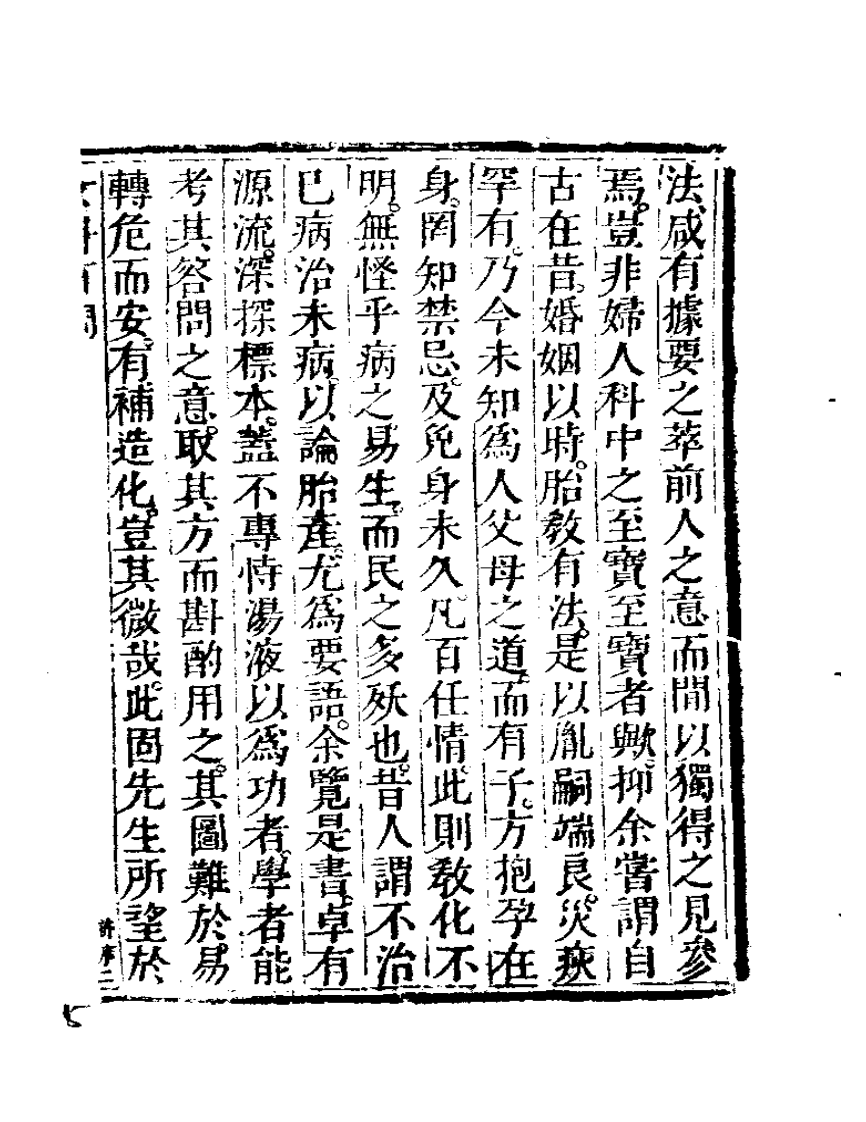 法咸有據要之萃前人之意而間以獨得之見參
焉豈非婦人科中之至寶至寶者歟抑余嘗謂自
古在昔婚姻以時胎教有法是以胤嗣端良災痰
罕有乃今未知為人父母之道而有子方抱孕在
身罔知禁忌及免身未久凡百任情此則教化不
明無怪乎病之易生而民之多殀也昔人謂不治
已病治未病以論胎產尤為要語余覽是書卓有
源流深探標本蓋不專恃湯液以為功者學者能
考其答問之意取其方而斟酌用之其圖難於易
轉危而安有補造化豈其微哉此固先生所望於
女科百問
許序二